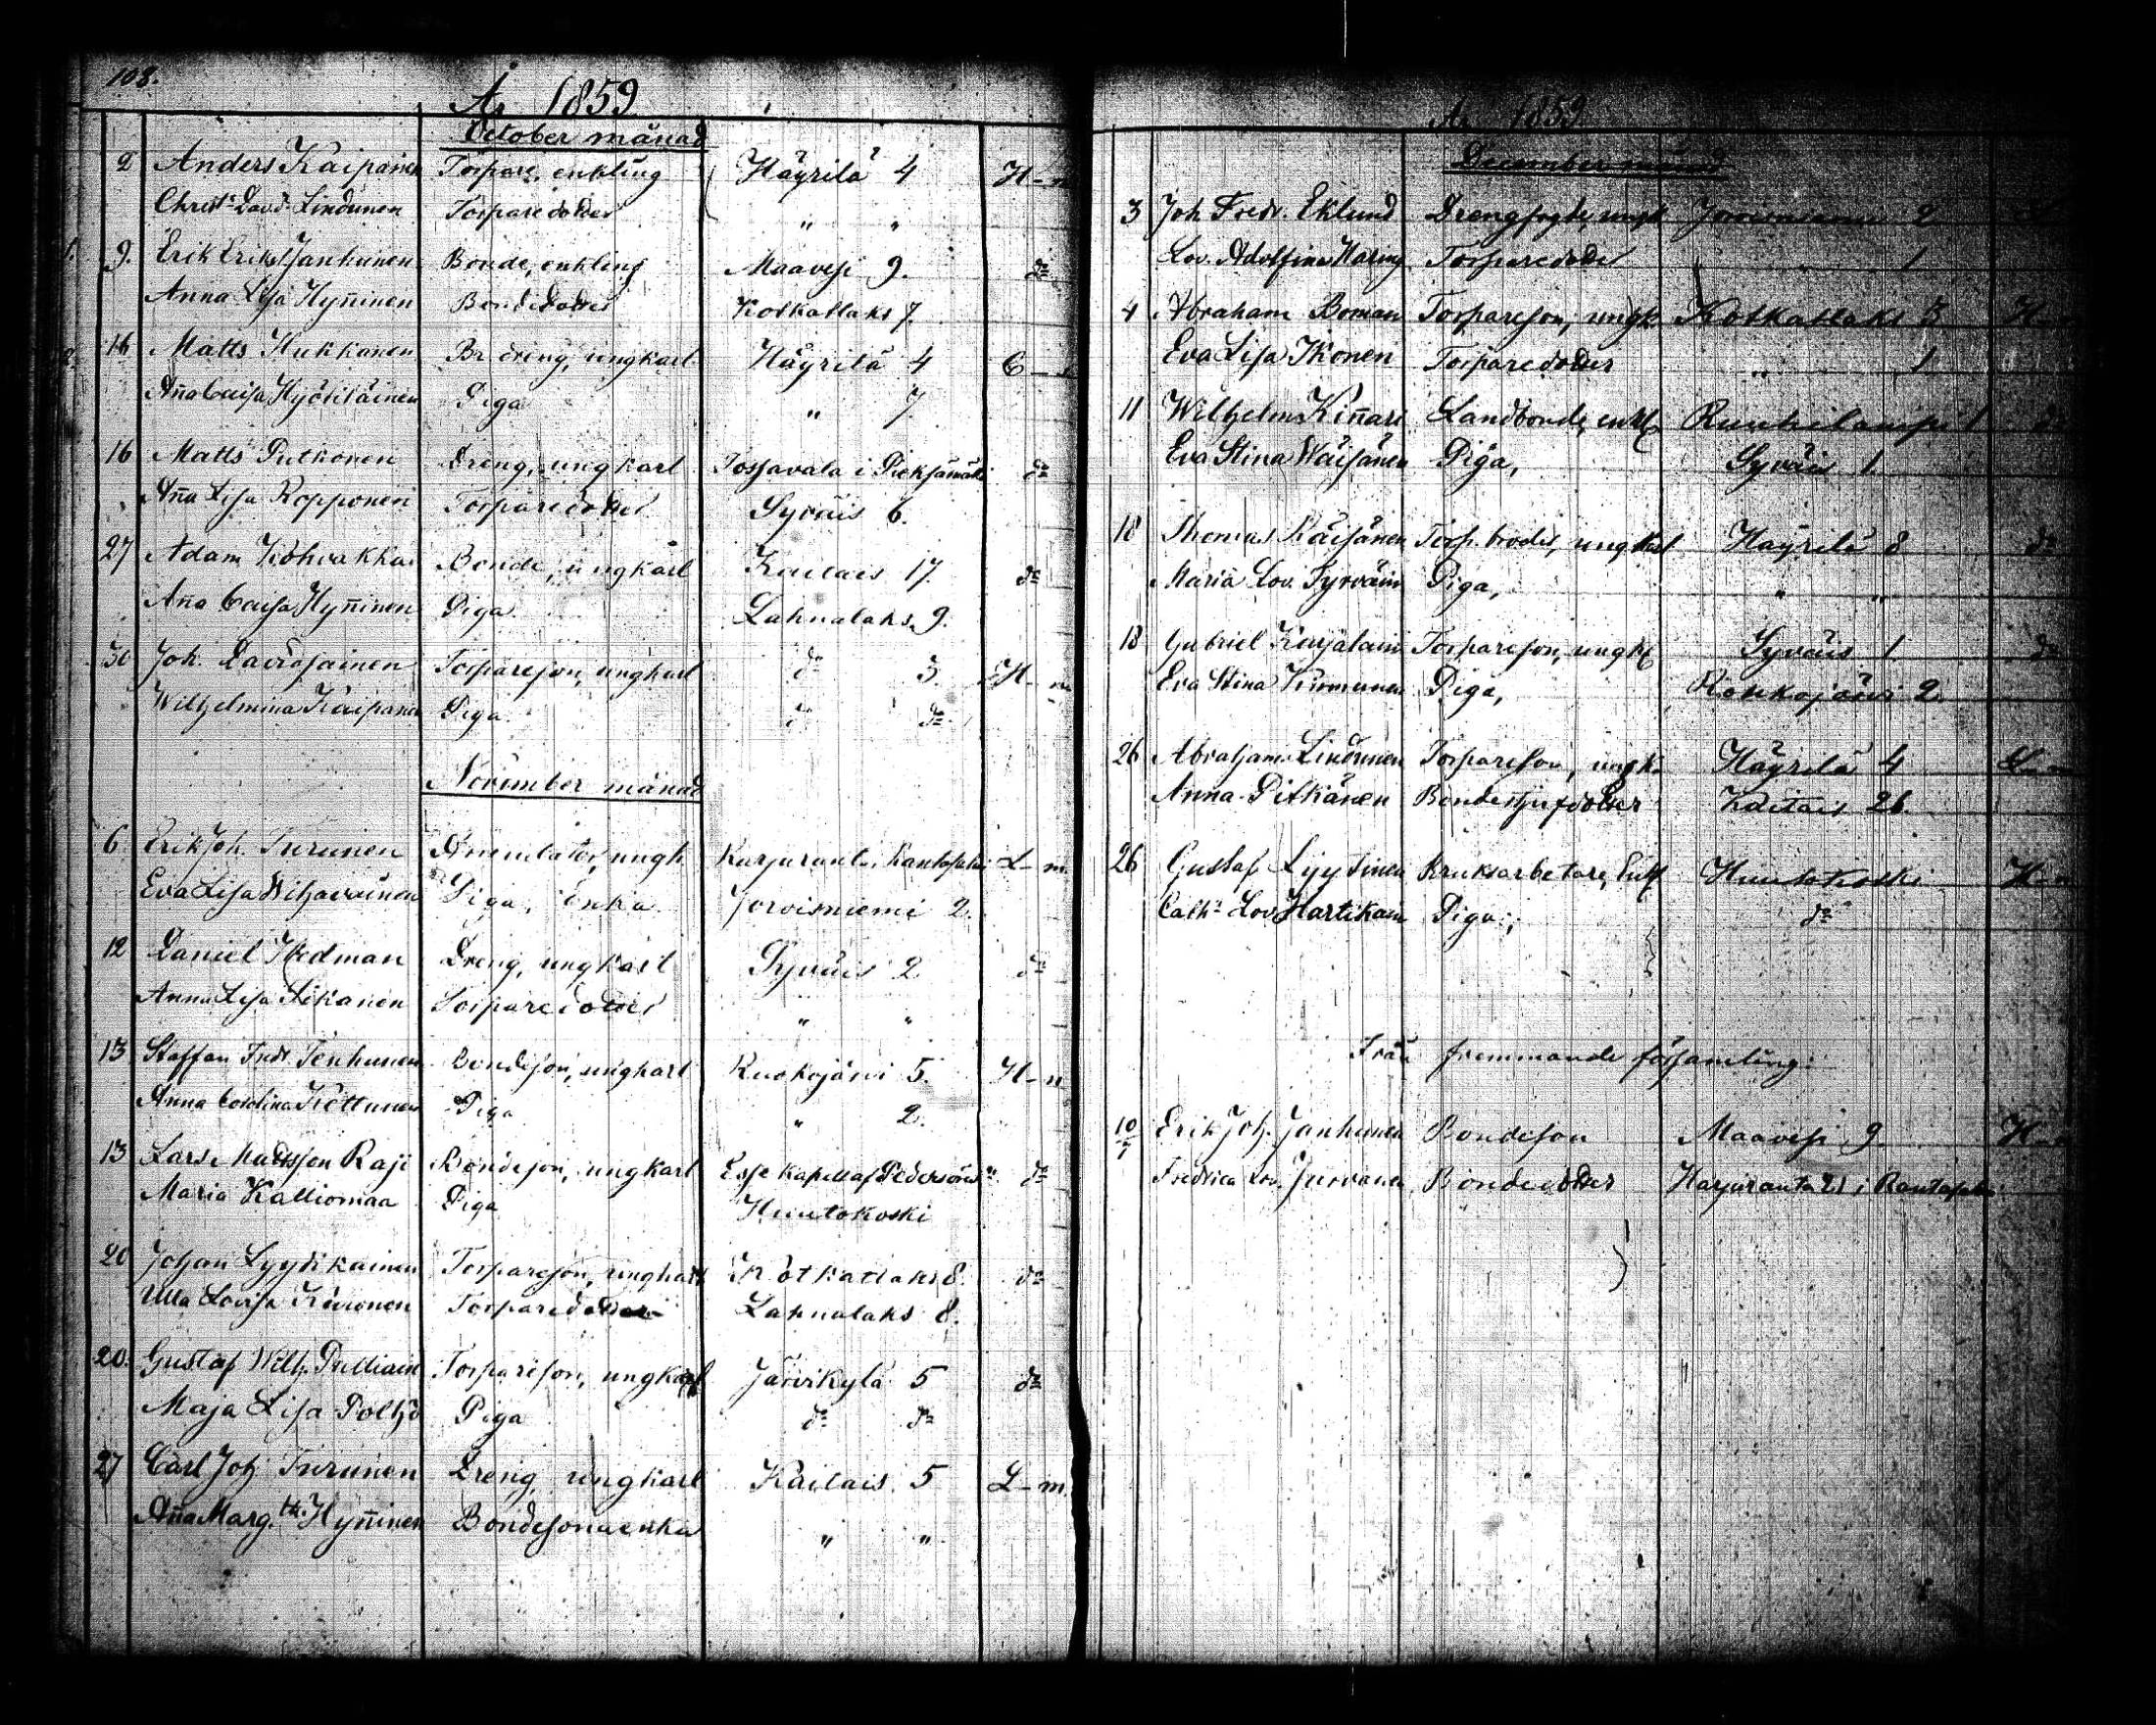 108.
År 1859
October månad
2 Anders Kaipainen Torpare, enkling Häyrilä 4 H-n
Christ. Davd. Lindunen Torparedotter " "
1. 9. Erik Eriks. Janhunen Bonde, enkling Maavesi 9. do
Anna Lisa Hyn̄inen Bondedotter Kotkatlaks 7.
2. 16 Matts Hukkanen Br. dreng, ungkarl Häyrilä 4
An̄a Caisa Hyötiläinen Piga " 7.
16 Matts Putkonen Dreng, ungkarl Tossavala i Pieksämäki do
An̄a Lisa Kopponen Torparedotter Syväis 6.
27 Adam Kohvakka Bonde, ungkarl Kaitais 17. do
An̄a Caisa Hyn̄inen Piga Lahnalaks 9.
30 Joh. Torpareson, ungkarl do 3. H-n
Wilhelmina Kaipainen Piga do do
November månad
6 Erik Joh. Turunen Arrendator, ungk. L-m
Eva Lisa Piga, Enka Joroisniemi 2.
12 Daniel Hedman Dreng, ungkarl Syväis 2 do
Anna Lisa Torparedotter " "
13 Staffan Fredr. Tenhunen Bondeson, ungkarl Ruokojärvi 5. H-n
Anna Carolina Kettunen Piga " 2.
13 Lars Mattsson Raji Bondeson, ungkarl Esse Kapell af Pedersöre do
Maria Kalliomaa Piga Huutokoski
20 Johan Lyytikainen Torpareson, ungkarl Kotkatlaks 8. do
Ulla Lovisa Torparedotter Lahnalaks 8.
20. Gustaf Wilh. Pulliain Torpareson, ungkarl Järvikylä 5 do
Maja Lisa Piga do do
27 Carl Joh. Turunen Dreng, ungkarl Kaitais 5 L-m.
An̄a Marg.tha Hyn̄inen Bondesonaenka " "
År 1859
December månad
3 Joh. Fredr. Eklund Drengfogde, ungk. Joroisniemi 2
Lov. Adolfina Haring Torparedotter " 1
4 Abraham Boman Torpareson, ungk. Kotkatlaks 3 H-n
Eva Lisa Ikonen Torparedotter " 1
11 Wilhelm Kin̄ari Landbonde, enkl. Ruuhilampi 1 do
Eva Stina Wäisänen Piga, Syväis 1.
18 Thomas Räisänen Torp. broder, ungkarl Häyrilä 8 do
Maria Lov. Syrväin Piga, " "
18 Gabriel Karjalain Torpareson, ungk. Syväis 1. do
Eva Stina Piga, Ruokojärvi 2.
26 Abraham Lindunen Torpareson, ungk. Häyrilä 4 L-m
Anna Pitkänen Bondestyfdotter Kaitais 26.
26 Gustaf Lyytinen Bruksarbetare, Enkl. Huutokoski H-n
Cath. Lov. Hartikain Piga, do
Från fremmande församling:
10/7 Erik Joh. Janhunen Bondeson Maavesi 9. H-n
Fredrica Lov. Bondedotter Harjuranta 21 i Rantasalmi